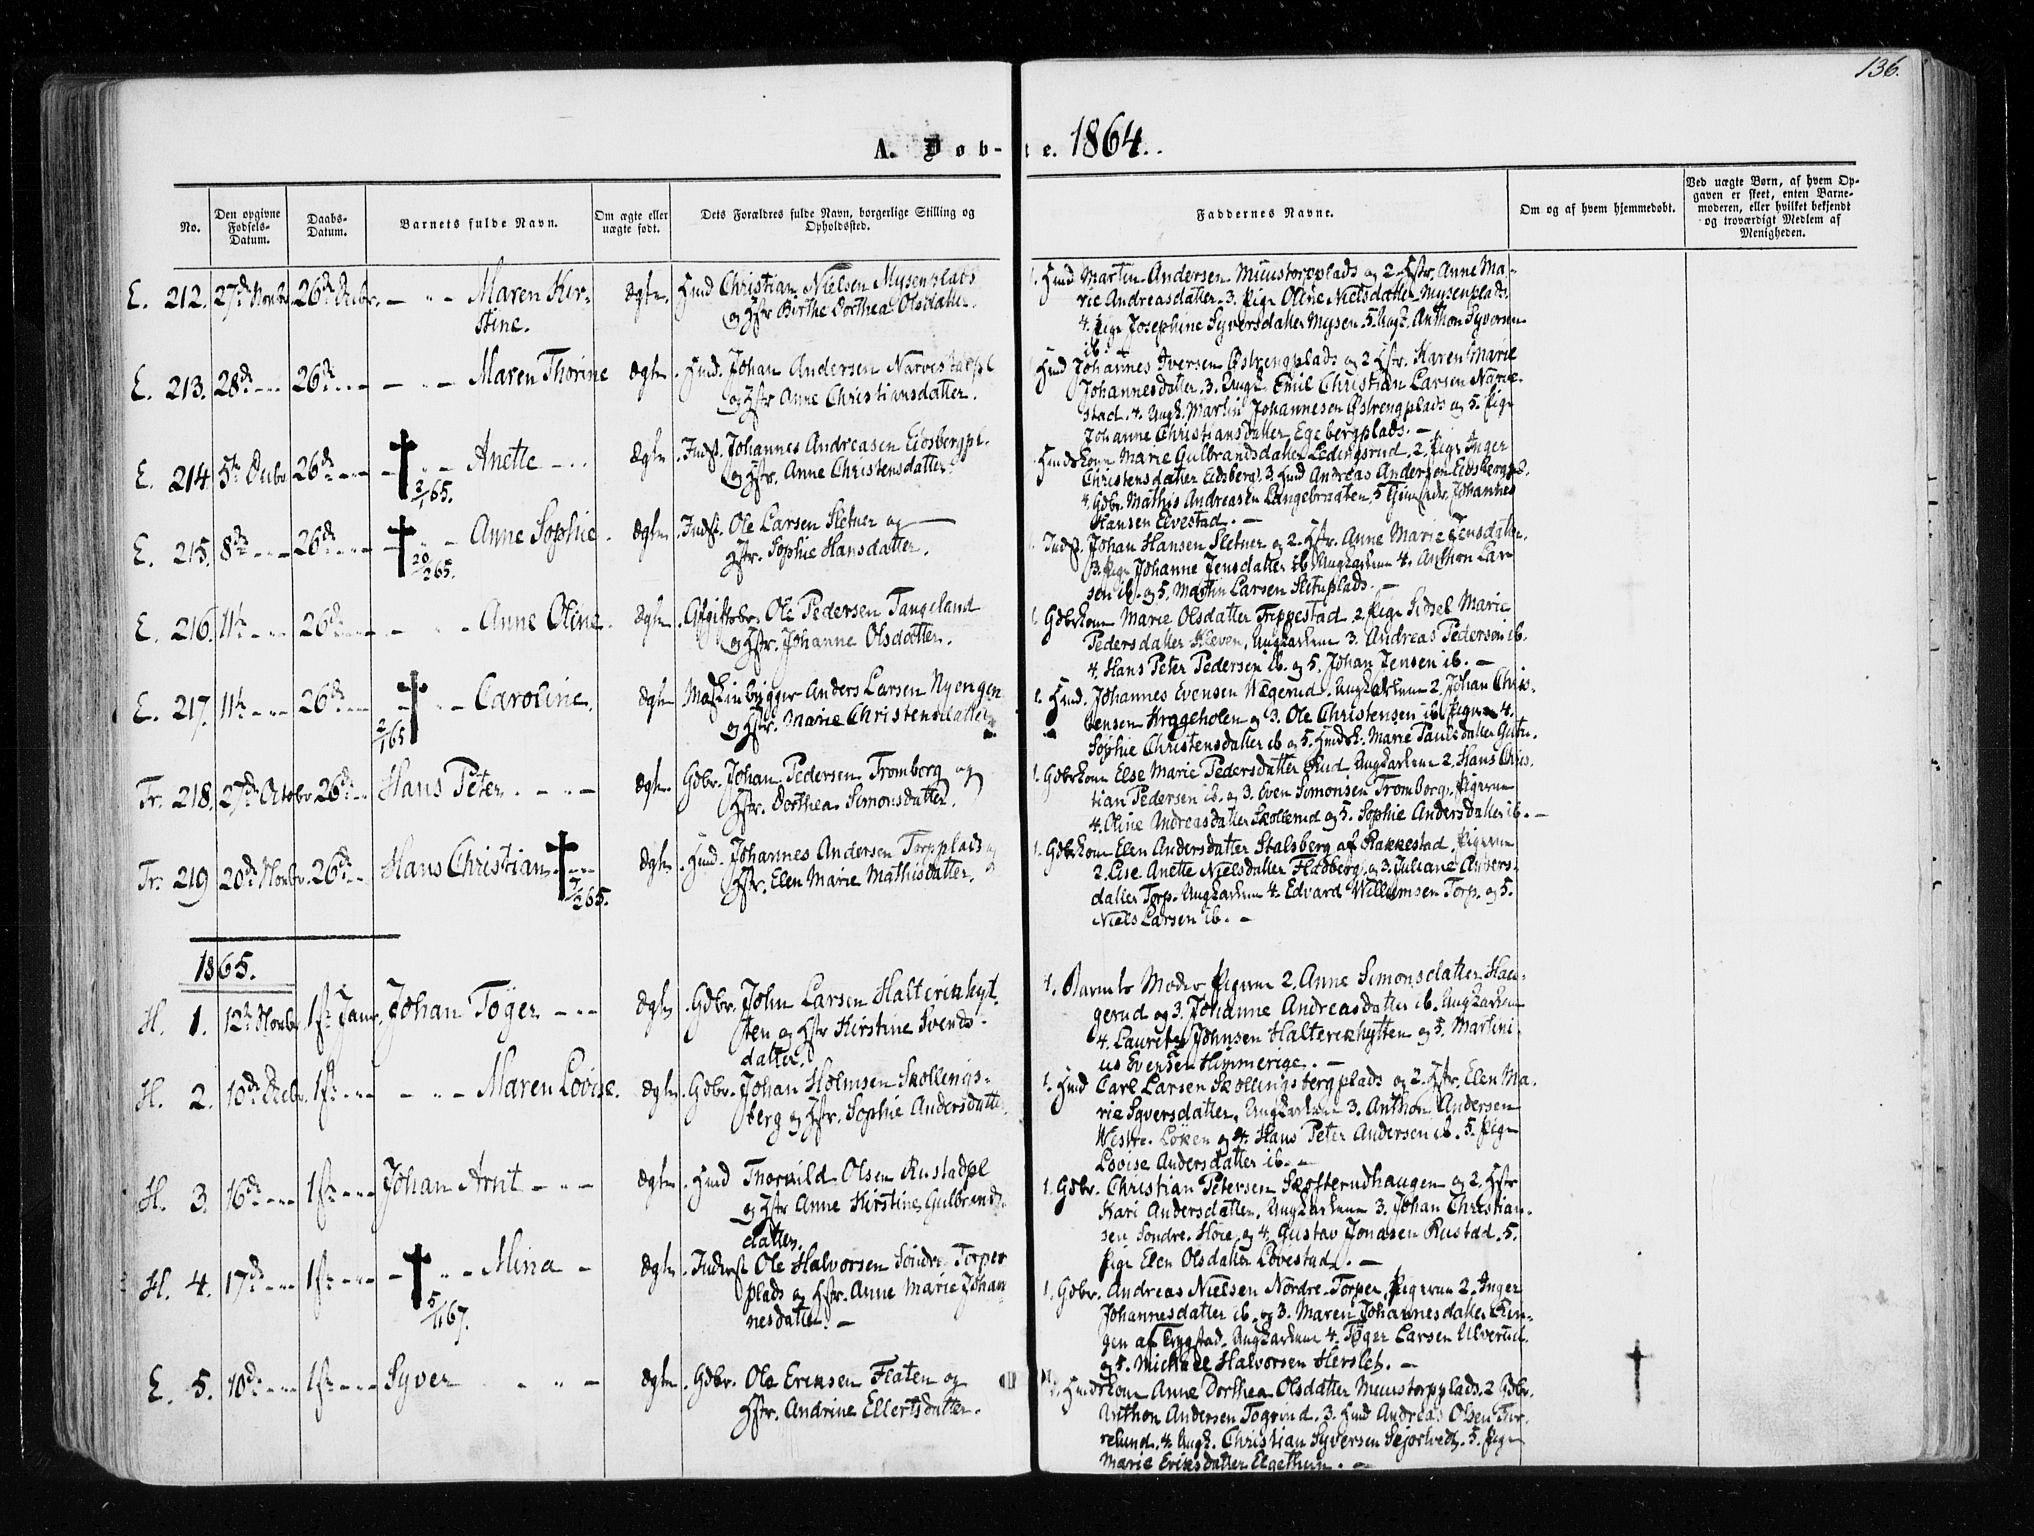 136.
A. Døb- te. 1864.
No.
Den opgivne Fødsels-Datum.
Daabs-Datum.
Barnets fulde Navn.
Om ægte eller uægte født.
Dets Forældres fulde Navn, borgerlige Stilling og Opholdssted.
Faddernes Navne.
Om og af hvem hjemmedøbt.
Ved uægte Børn, af hvem Opgaven er skeet, enten Barnemoderen, eller hvilket bekjendt og troværdigt Medlem af Menigheden.
E. 212. 27de Novbr 26de Decbr. — " — Maren Kir-
stine.
Ægte. Husmd Christian Nielsen Mysenplads
og Hstr Birthe Dorthea Olsdatter.
1. Husmd Martin Andersen Muustorpplads og 2. Hstr. Anne Ma-
rie Andreasdatter. 3. Pige Oline Nielsdatter Mysenplads.
4. Pige Josephine Syversdatter Mysen. 5. Ungk. Anthon Syversen
ib.
E. 213. 28de — 26de — — " — Maren Thorine
Ægte. Husmd. Johan Andersen Narvestadpl
og Hstr Anne Christiansdatter.
Husmd Johannes Iversen Østrengplads og 2 Hstr. Karen Marie
Johannesdatter. 3. Ungk. Emil Christian Larsen Narve-
stad. 4. Ungk. Martin Johannesen Østrengplads og 5. Pige
Johanne Christiansdatter Egebergplads. —
E. 214. 5te Decbr 26de — — " — Anette —
2/1 65.
Ægte. Indst. Johannes Andreasen Eidsbergpl.
og Hstr. Anne Christensdatter.
Husmdskone Marie Gulbrandsdatter Ledingsrud. 2. Pige Inger
Christensdatter Eidsberg. 3. Husmd Andreas Andersen Eidsbergpl.
4. Gdbr. Mathis Andreasen Langebraaten. 5. Johannes
Hansen Elvestad. —
E. 215. 8de — 26de — — " — Anne Sophie.
20/2 65.
Ægte. Indst. Ole Larsen Sletner og —
Hstr. Sophie Hansdatter.
Indst. Johan Hansen Sletner og 2. Hstr. Anne Marie Jensdatter.
3. Pige Johanne Jensdatter ib. Ungkarlene 4. Anthon Lar-
sen ib. og 5. Martin Larsen Sletnplads. —
E. 216. 11te — 26de — — " — Anne Oline.
Ægte. Afgiftsbr. Ole Pedersen Tangeland
og Hstr. Johanne Olsdatter.
1. Gdbrkone Marie Olsdatter Treppestad. 2. Pige Sidsel Marie
Pedersdatter Kleven. Ungkarlene 3. Andreas Pedersen ib.
4. Hans Peter Pedersen ib. og 5. Johan Jensen ib. —
E. 217. 11te — 26de — — " — Caroline.
2/1 65
Ægte. Maskinbrigger Anders Larsen Nyengen
og Hstr. Marie Christensdatter.
1. Husmd. Johannes Evensen Wegerud. Ungkarlene 2. Johan Chris-
tensen Hryggeholen og 3. Ole Christensen ib. Pigerne 4.
Sophie Christensdatter ib og 5. Husmdsk. Marie Paulsdatter
Tr. 218. 27de Octobr 26de — Hans Peter. — " —
Ægte. Gdbr. Johan Pedersen Tromberg og
Hstr. Dorthea Simonsdatter.
1. Gdbrkone Else Marie Pedersdatter Rud. Ungkarlene 2. Hans Chris-
tian Pedersen ib. og 3. Even Simonsen Tromborg. Pigerne
4. Oline Andreasdatter Skollerud og 5. Sophie Andersdatter ib. —
Tr. 219 20de Novbr. 26de — Hans Christian. —
7/2 65.
Ægte. Husmd. Johannes Andersen Torpplads og
Hstr. Elen Marie Mathisdatter.
1. Gdbrkone Elen Andersdatter Stalsberg af Rakkestad. Pigerne
2. Lise Anette Nielsdatter Fladberg. og 3. Juliane Anders-
datter Torp. Ungkarlene 4. Edvard Willumsen Torp. og 5.
Niels Larsen ib. —
1865.
H. 1. 12te Novbr. 1ste Janr. Johan Tøger — " —
Ægte. Gdbr. John Larsen Halterikhyt-
ten og Hstr Kirstine Svends-
datter.
1. Barnets Moder. Pigerne 2. Anne Simonsdatter Hau-
gerud og 3. Johanne Andreasdatter ib. Ungkarlene
4. Lauritz Johnsen Halterikhytten og 5. Martini-
us Evensen Himmerige. —
H. 2. 10de Decbr. 1ste — — " — Maren Lovise.
Ægte. Gdbr. Johan Holmsen Skollings-
berg og Hstr. Sophie Andersdatter
1. Husmd Carl Larsen Skollingsbergplads og 2. Hstr. Elen Ma-
rie Syversdatter. Ungkarlene 3. Anthon Andersen
Westre Løken og 4. Hans Peter Andersen ib. 5. Pige
Lovise Andersdatter ib. —
H. 3. 16de — 1ste — Johan Arnt — " —
Ægte. Husmd Thorvild Olsen Rustadpl
og Hstr Anne Kirstine Gulbrands-
datter.
1. Gdbr. Christian Petersen Skofterudhaugen og 2. Hstr
Kari Andersdatter. Ungkarlene 3. Johan Christian-
sen Søndre Høie og 4. Gustav Jonasen Rustad. 5.
Pige Elen Olsdatter Løvestad. —
H. 4. 17de — 1ste — — " — Mina —
5/11 67.
Ægte. Inderst Ole Halvorsen Søndre Torper
plads og Hstr. Anne Marie Johan-
nesdatter. —
1. Gdbr. Andreas Nielsen Nordre Torper, Pigerne 2. Inger
Johannesdatter ib. og 3. Maren Johannesdatter Ren-
gen af Trygstad. Ungkarlene 4. Tøger Larsen Ulverud.
og 5. Michael Halvorsen Herslet. —
E. 5. 10de — 1ste — Syver — " —
Ægte. Gdbr. Ole Eriksen Flaten og
Hstr. Andrine Ellertsdatter.
Husmdskone Anne Dorthea Olsdatter Muustorpplads. 2 Gdbr.
Anthon Andersen Togrind. 3. Husmd Andreas Olsen Tor-
relund. 4. Ungk. Christian Syversen Skjortvedt. 5. Pige
Marie Eriksdatter Elgethun. —